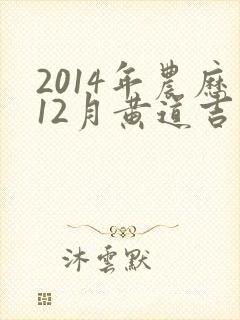 2014年農歷
12月黄道吉
沐雲默